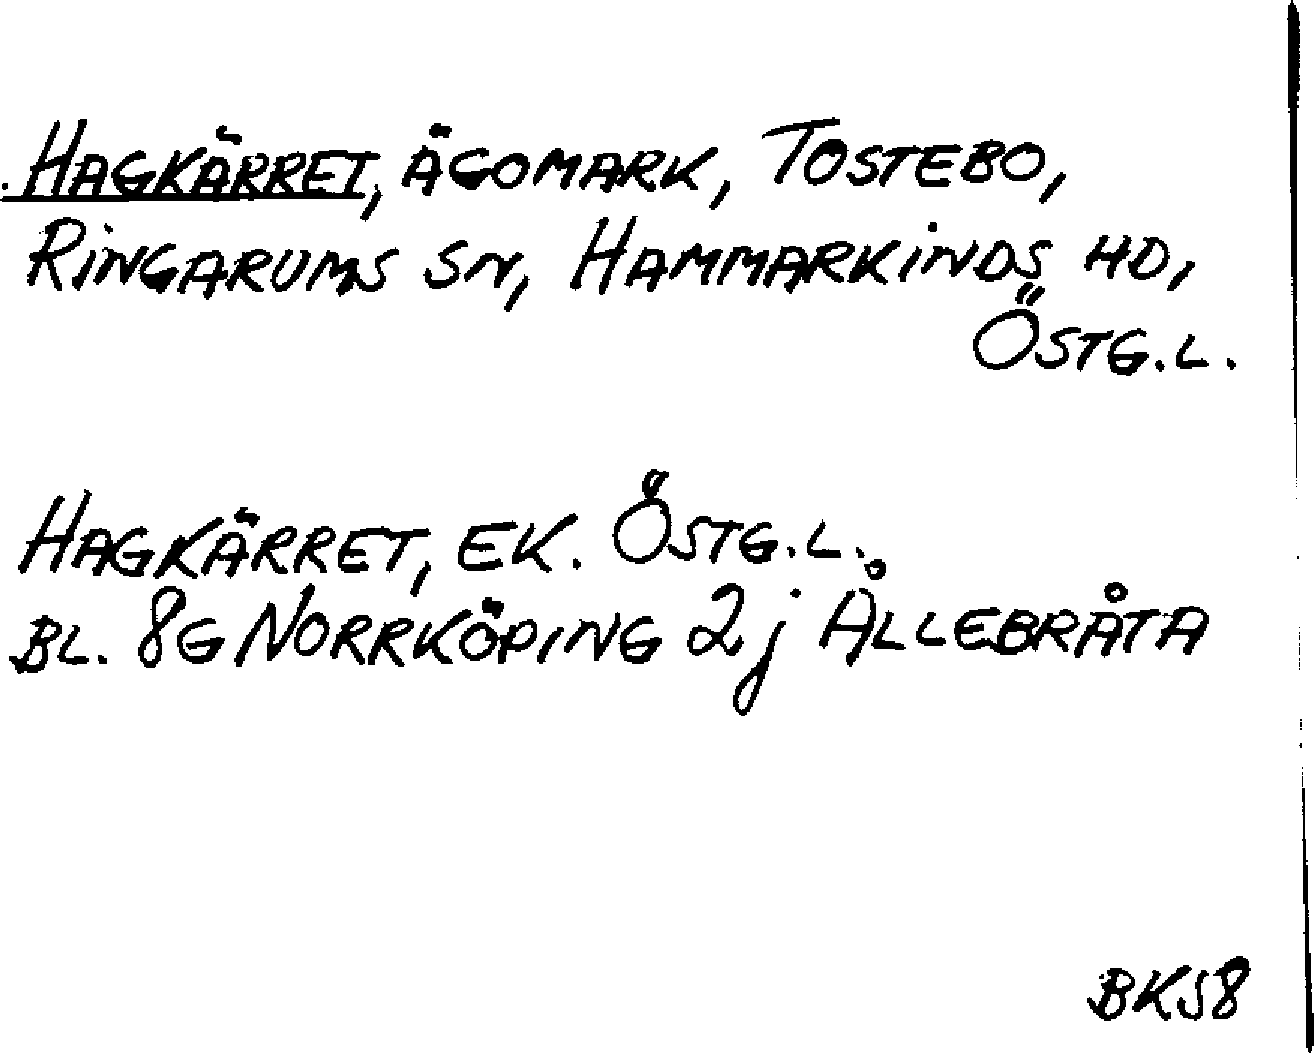 HAGKÄRRET, ÄGOMARK, TOSTEBO,
RINGARUMS SN, HAMMARKINDS HD,
ÖSTG.L.
HAGKÄRRET, EK. ÖSTG.L.
BL. 8G NORRKÖPING 2j ÅLLEBRÅTA
BK58